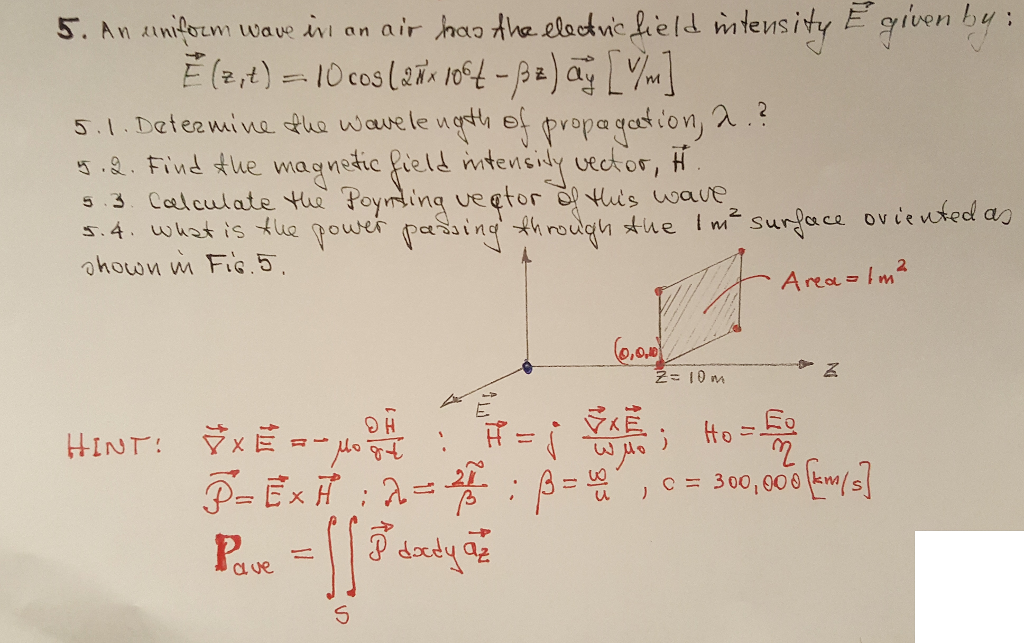 5. An uniform wave in an air has the electric field intensity E⃗ given by:
E⃗ (z,t) = 10 cos(2π × 10⁶t - βz) a⃗y [V/m]
5.1. Determine the wavelength of propagation, λ.?
5.2. Find the magnetic field intensity vector, H⃗.
5.3. Calculate the Poynting vector of this wave
5.4. What is the power passing through the 1m² surface oriented as
shown in FIG.5.
Area = 1m²
(0,0,10)
Z = 10m
Z
E⃗
HINT: ∇⃗ × E⃗ = - μ₀ ∂H⃗/∂t ; H⃗ = j ∇⃗×E⃗/ωμ₀ ; H₀ = E₀/η
P⃗ = E⃗ × H⃗ ; λ = 2π/β ; β = ω/u , c = 300,000 [km/s]
Pave = ∬S P⃗ dxdy a⃗z